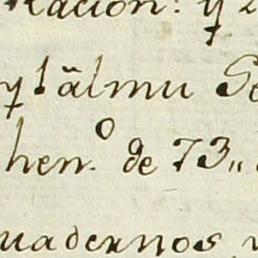 Racion: y 2
y 1 almu Se
hen.º de 73,,
uadernos, v